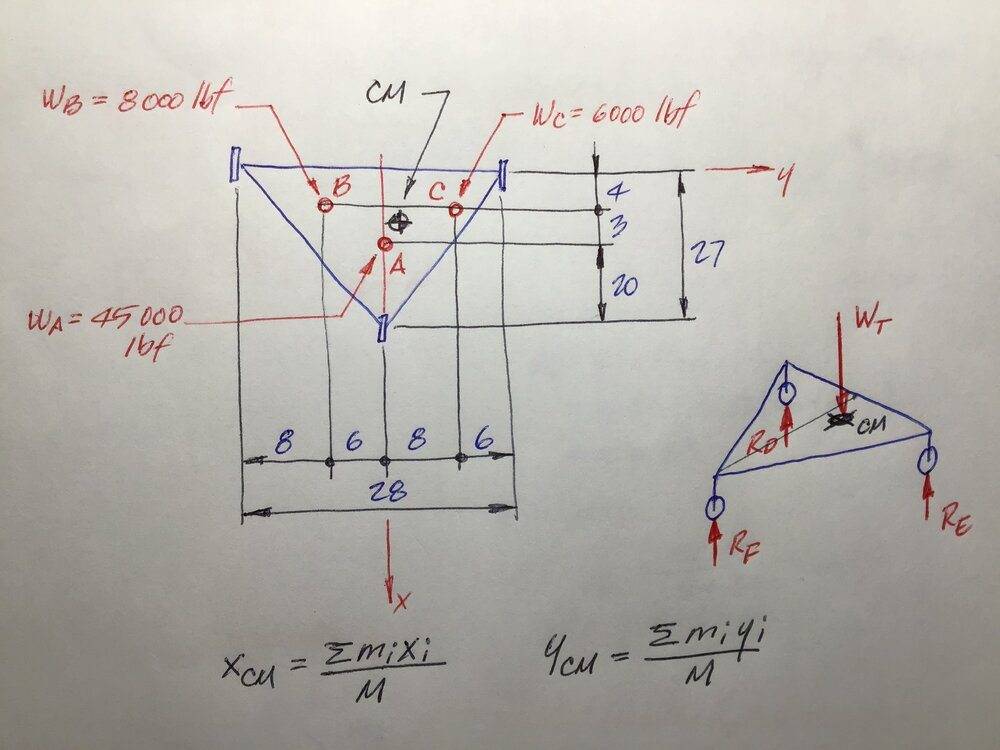 WB = 8000 lbf
CM
WC = 6000 lbf
y
B
C
4
3
A
27
20
WA = 45000
lbf
WT
CM
RD
8 6 8 6
28
RE
RF
x
xCM = Σmixi / M
yCM = Σmiyi / M